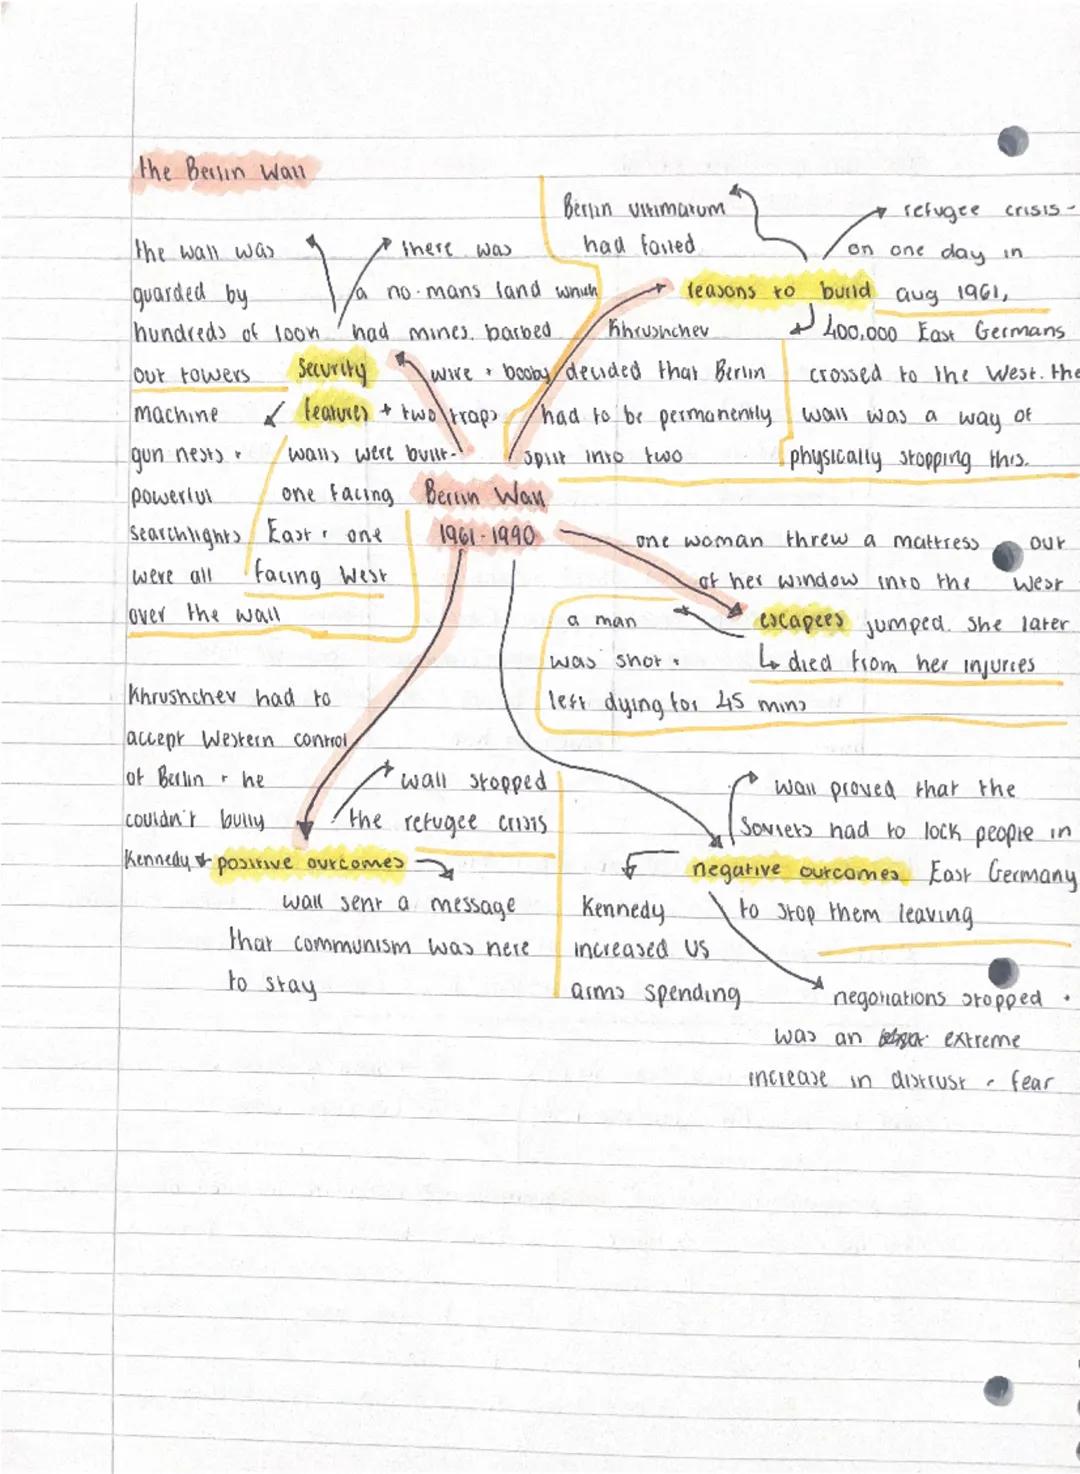 the Berlin Wall
the wall was
guarded by
hundreds of look
out towers
machine
gun nests +
powerful
searchlights
were all
over the wall
there was
a no-mans land which
had mines, barbed
wire + booby
traps
Security
features + two
walls were built-
one facing
East + one
facing West
Berlin ultimatum
had failed
reasons to build
refugee crisis -
on one day in
aug 1961,
400,000 East Germans
crossed to the West. the
wall was a way of
physically stopping this.
Khrushchev
decided that Berlin
had to be permanently
split into two
Berlin Wall
1961-1990
one woman threw a mattress out
of her window into the West
escapees jumped. She later
died from her injuries
a man
was shot +
left dying for 45 mins
Khrushchev had to
accept Western control
of Berlin + he
couldn't bully
Kennedy
positive outcomes
wall stopped
the refugee crisis
wall sent a message
that communism was here
to stay
wall proved that the
Soviets had to lock people in
negative outcomes East Germany
to stop them leaving
Kennedy
increased US
arms spending
negotiations stopped +
was an extreme
increase in distrust + fear